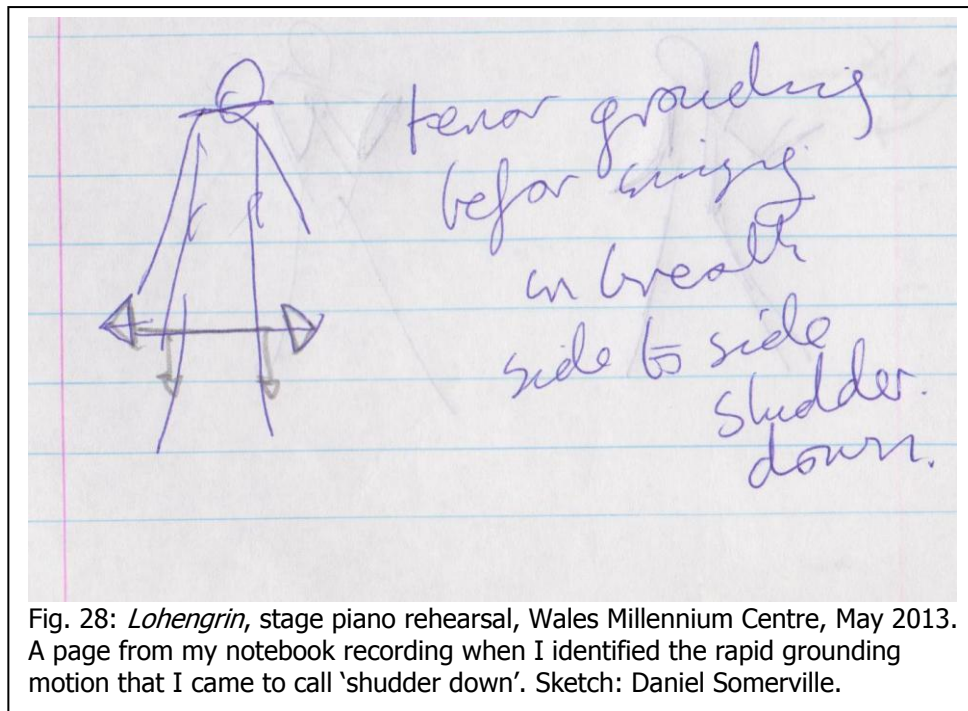 tenor grounding
befor singing
in breath
side to side
shudder.
down.
Fig. 28: Lohengrin, stage piano rehearsal, Wales Millennium Centre, May 2013.
A page from my notebook recording when I identified the rapid grounding
motion that I came to call ‘shudder down’. Sketch: Daniel Somerville.